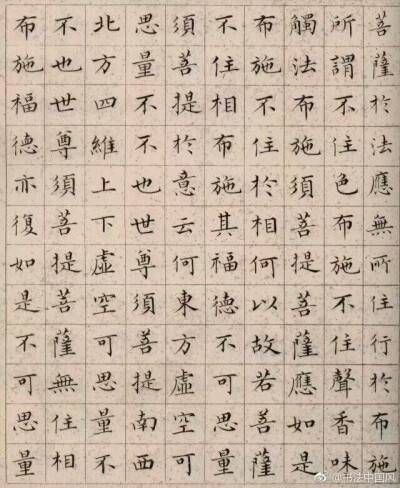 菩薩於法應無所住行於布施
所謂不住色布施不住聲香味
觸法布施須菩提菩薩應如是
布施不住於相何以故若菩薩
不住相布施其福德不可思量
須菩提於意云何東方虛空可
思量不不也世尊須菩提南西
北方四維上下虛空可思量不
不也世尊須菩提菩薩無住相
布施福德亦復如是不可思量
@书法中国风